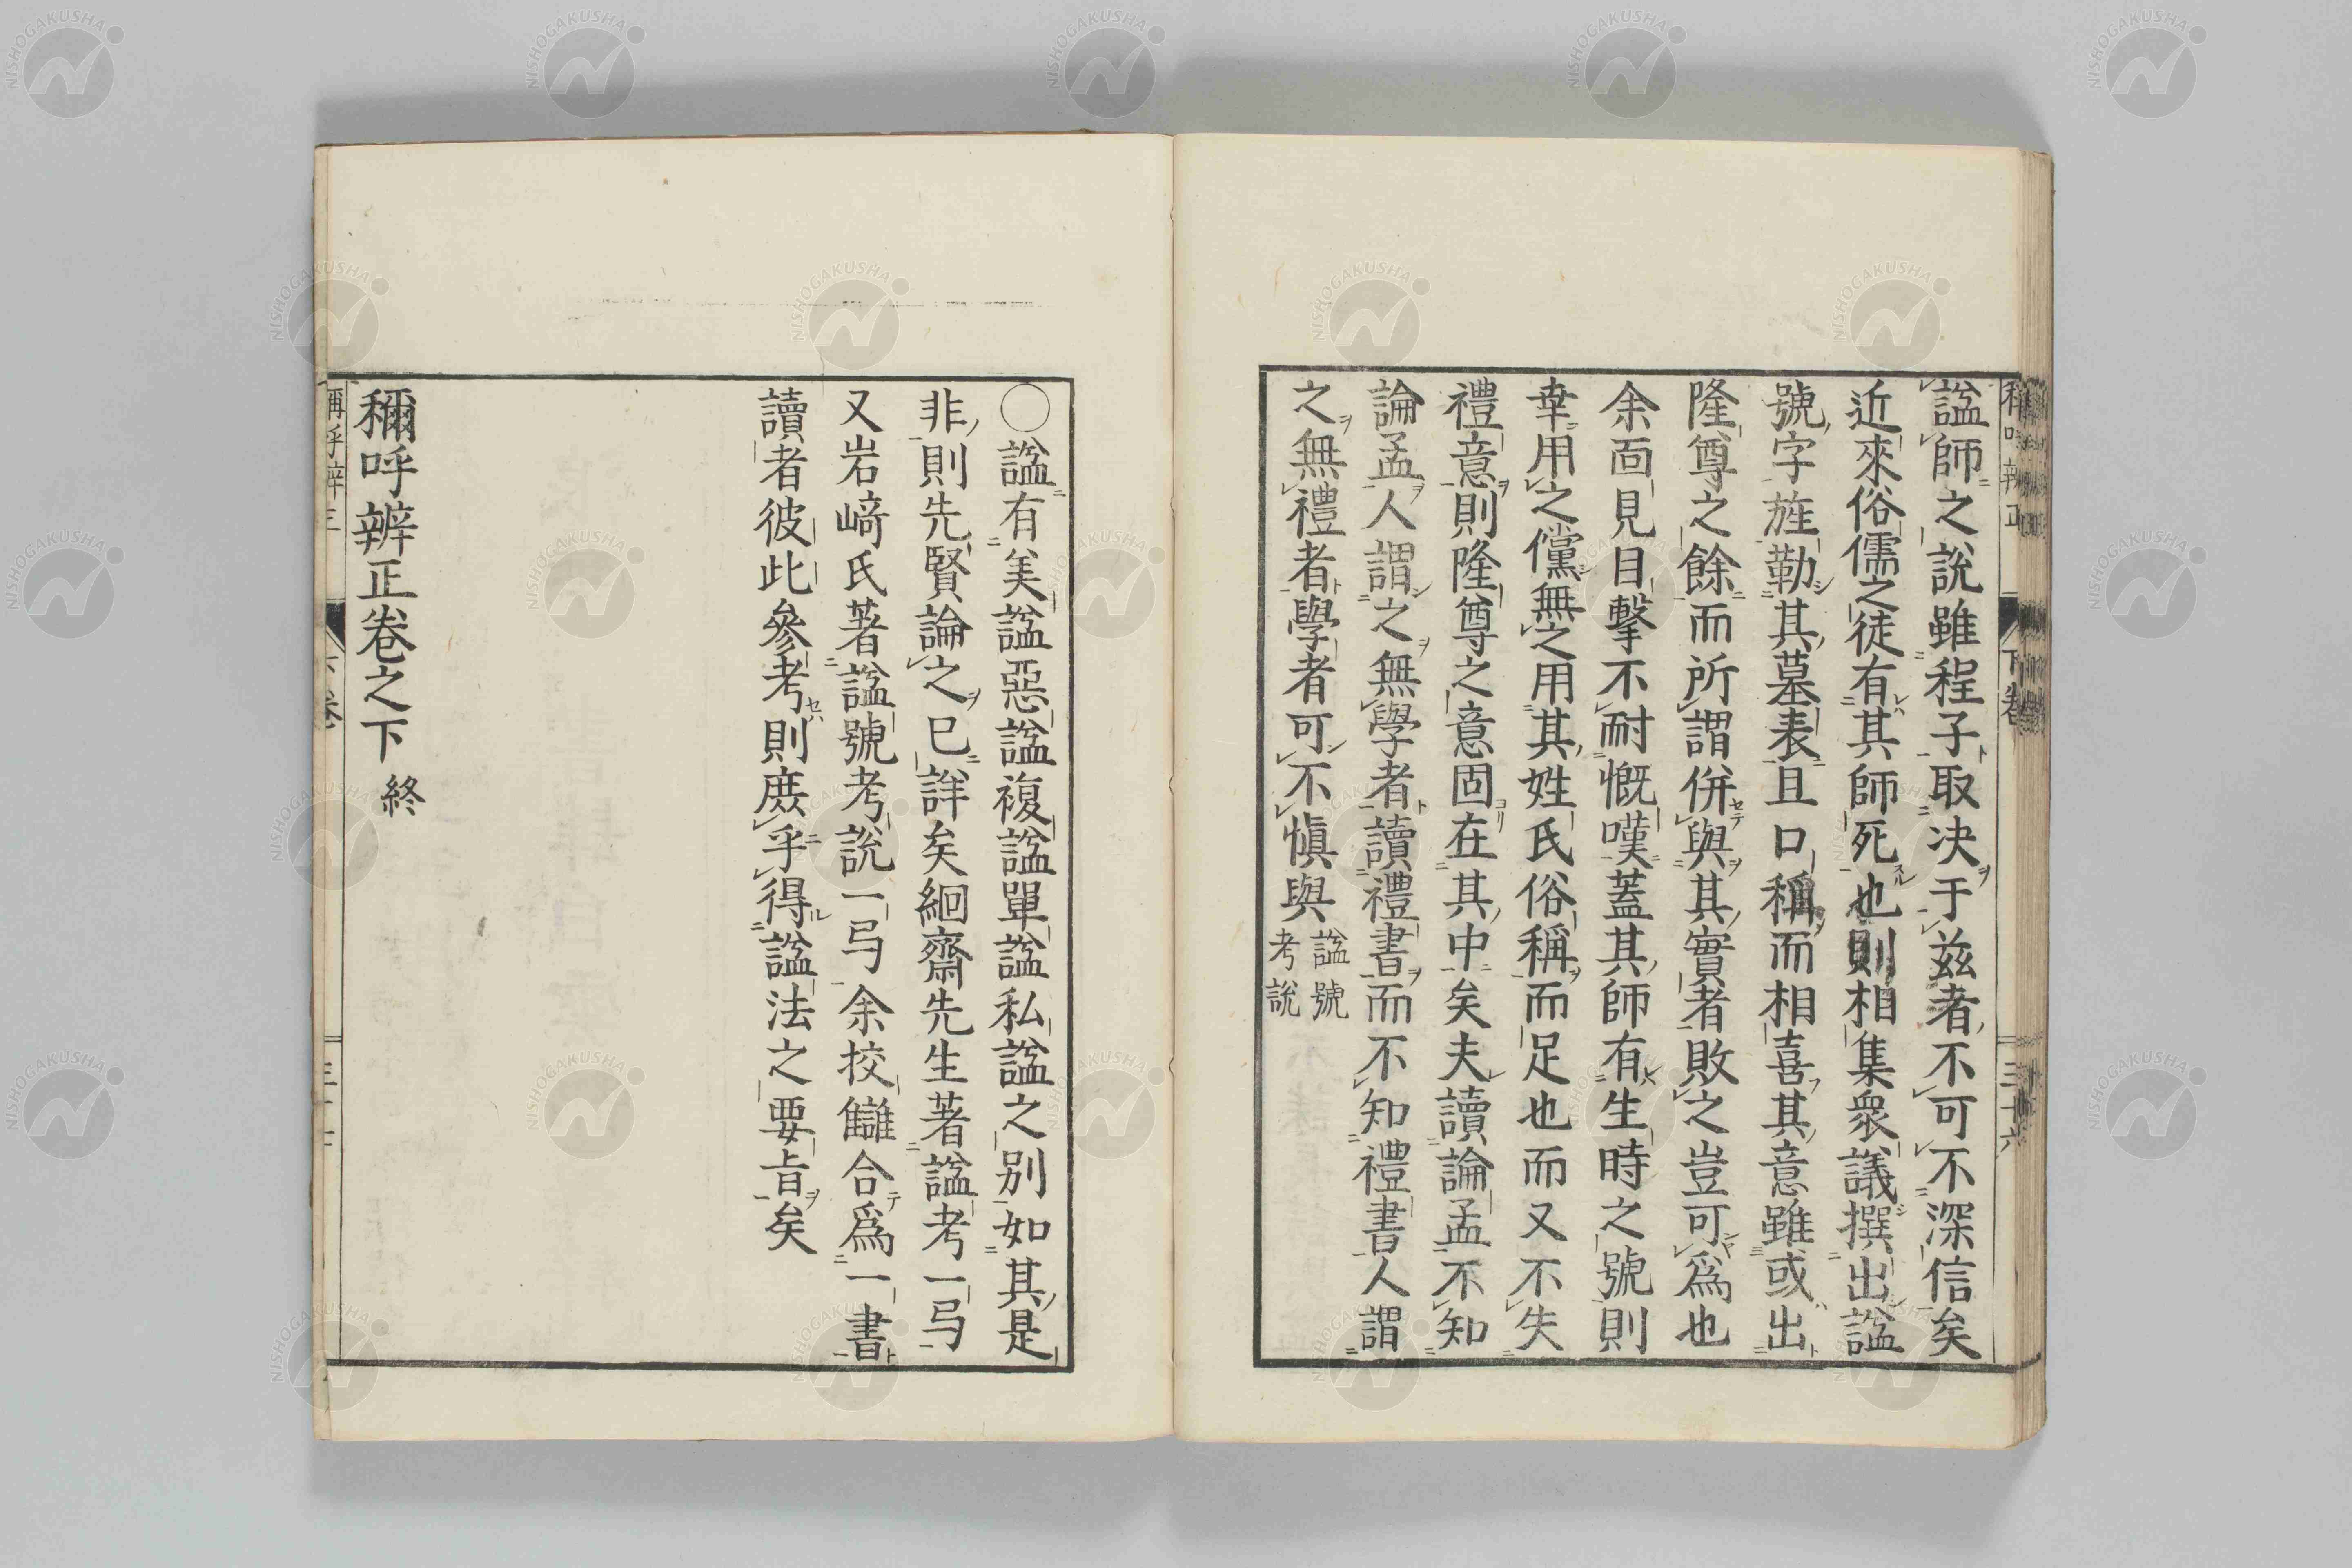 謚師之說雖程子取决于玆者不可不深信矣
近來俗儒之徒有其師死也則相集衆議撰出謚
號字旌勒其墓表且口稱而相喜其意雖或出
隆尊之餘而所謂併與其實者敗之豈可爲也
余面見目擊不耐慨嘆蓋其師有生時之號則
幸用之儻無之用其姓氏俗稱而足也而又不失
禮意則隆尊之意固在其中矣夫讀論孟不知
論孟人謂之無學者讀禮書而不知禮書人謂
之無禮者學者可不愼與
謚號
考說
〇謚有美謚惡謚複謚單謚私謚之別如其是
非則先賢論之已詳矣絅齋先生著謚考一弓
又岩﨑氏著謚號考說一弓余挍讎合爲一書
讀者彼此參考則庶乎得謚法之要旨矣
稱呼辨正卷之下 終
下卷
三十六
NISHOGAKUSHA